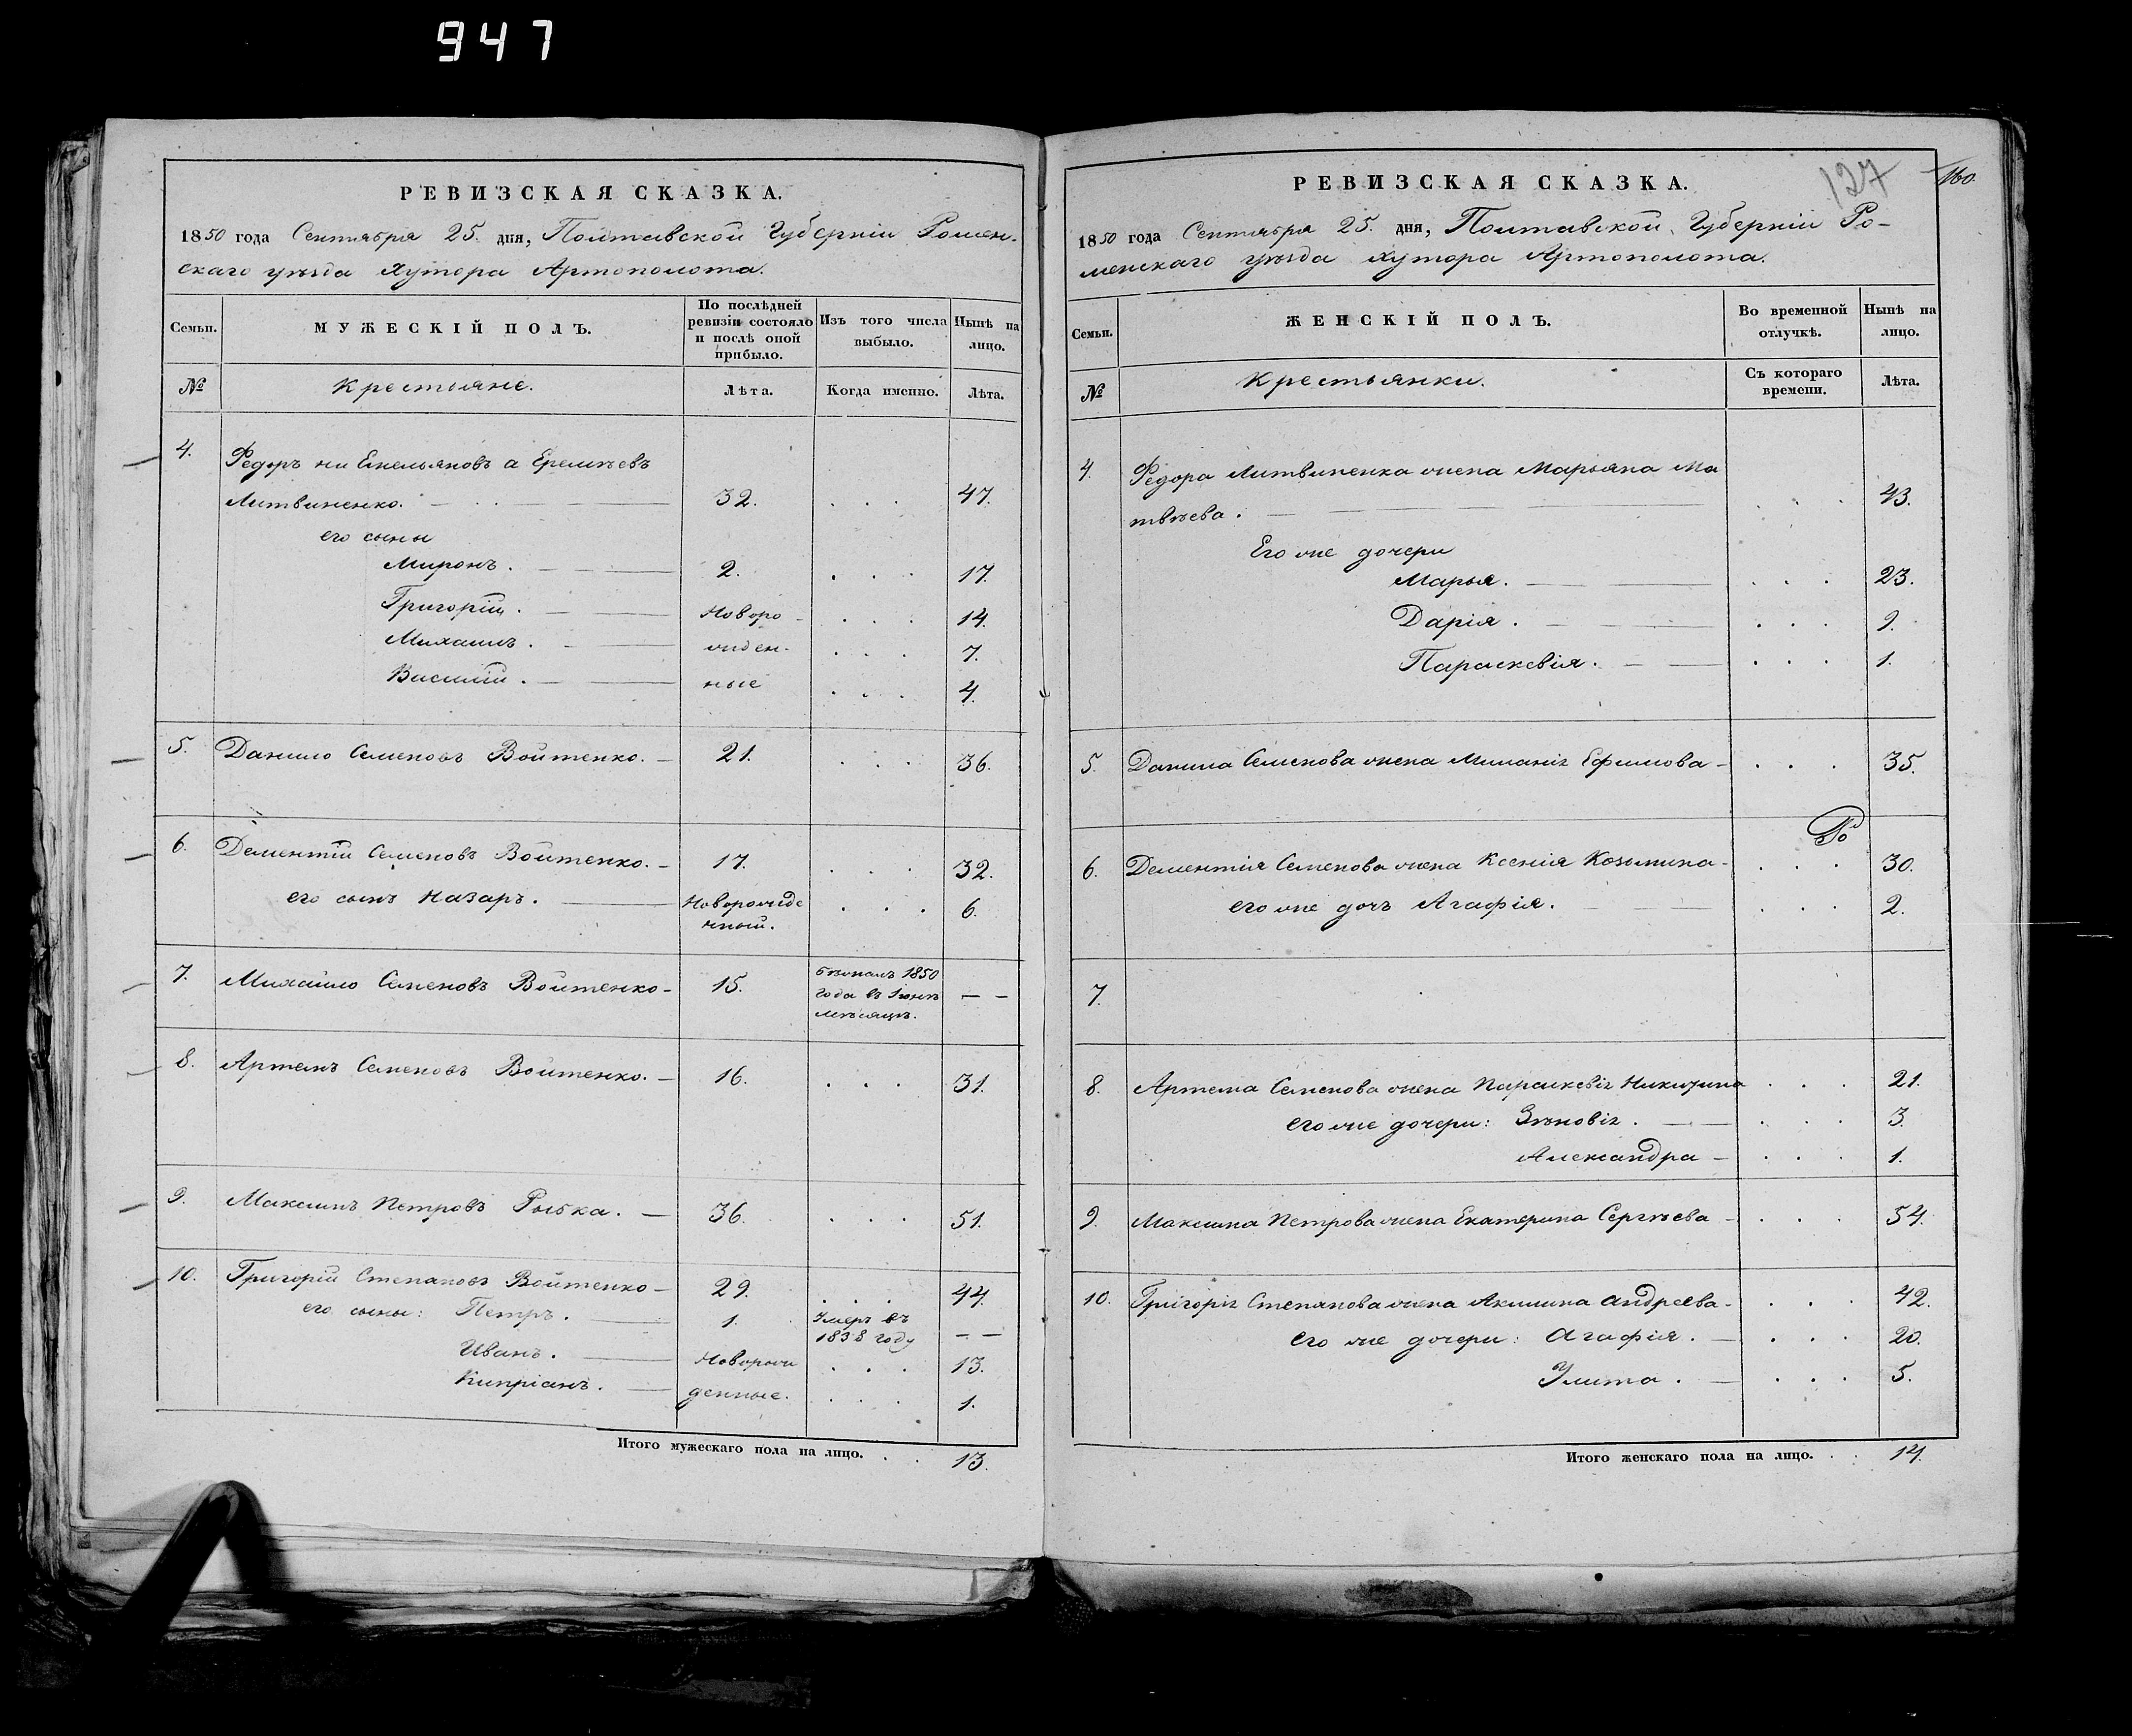 947
РЕВИЗСКАЯ СКАЗКА.
1850 года Сентября 25. дня, Полтавской Губерніи Ромен-
скаго уѣзда хутора Артополота.
Семьи.
МУЖЕСКІЙ ПОЛЪ.
По послѣдней
ревизіи состояло
и послѣ оной
прибыло.
Изъ того числа
выбыло.
Нынѣ на
лицо.
№
Крестьяне.
Лѣта.
Когда именно.
Лѣта.
4. Федоръ не Емельяновъ а Еремѣевъ
Литвиненко. 32. . . . 47.
его сыны
Миронъ. 2. . . . 17.
Григорій. Новоро- . . . 14.
Михаилъ. жден- . . . 7.
Василій. ные . . . 4.
5. Данило Семеновъ Войтенко. 21. . . . 36.
6. Дементій Семеновъ Войтенко. 17. . . . 32.
его сынъ Назаръ. Новорожде . . . 6.
нный.
7. Михайло Семеновъ Войтенко 15. бѣжалъ 1850 — —
года въ Іюнѣ
мѣсяцѣ.
8. Артемъ Семеновъ Войтенко. 16. . . . 31.
9. Максимъ Петровъ Рыбка. 36. . . . 51.
10. Григорій Степановъ Войтенко 29. . . . 44.
его сыны: Петръ. 1. Умеръ въ
1838 году — —
Иванъ. Новорож . . . 13.
Кипріанъ. денные. . . . 1.
Итого мужескаго пола на лицо. . . 13.
127
160.
РЕВИЗСКАЯ СКАЗКА.
1850 года Сентября 25. дня, Полтавской Губерніи Ро-
менскаго уѣзда хутора Артополота.
Семьи.
ЖЕНСКІЙ ПОЛЪ.
Во временной
отлучкѣ.
Нынѣ на
лицо.
№
Крестьянки.
Съ котораго
времени.
Лѣта.
4. Федора Литвиненка жена Марьяна Ма
твѣева. . . . 43.
Его же дочери
Марья. . . . 23.
Дарія. . . . 9.
Параскевія. . . . 1.
5. Данила Семенова жена Миланія Ефимова . . . 35.
6. Дементія Семенова жена Ксенія Козьмина . . . 30.
его же дочь Агафія. . . . 2.
7.
8. Артема Семенова жена Параскевія Никитина . . . 21.
его же дочери: Зѣновія. . . . 3.
Александра . . . 1.
9. Максима Петрова жена Екатерина Сергѣева . . . 54.
10. Григорія Степанова жена Акилина Андреева. . . . 42.
его же дочери: Агафія. . . . 20.
Улита. . . . 5.
Итого женскаго пола на лицо. . . 14.